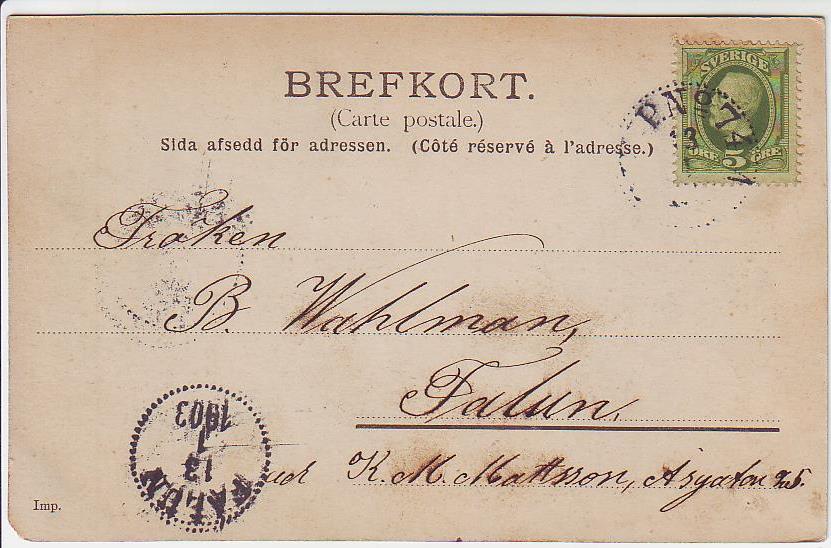 BREFKORT.
(Carte postale.)
Sida afsedd för adressen. (Côté réservé à l'adresse.)
SVERIGE
ÖRE 5 ÖRE
PKXP 74
13
1
Fröken
B. Wahlman,
Falun.
K. M. Mattsson, Åsgatan 25.
FALUN
13
1
1903
Imp.